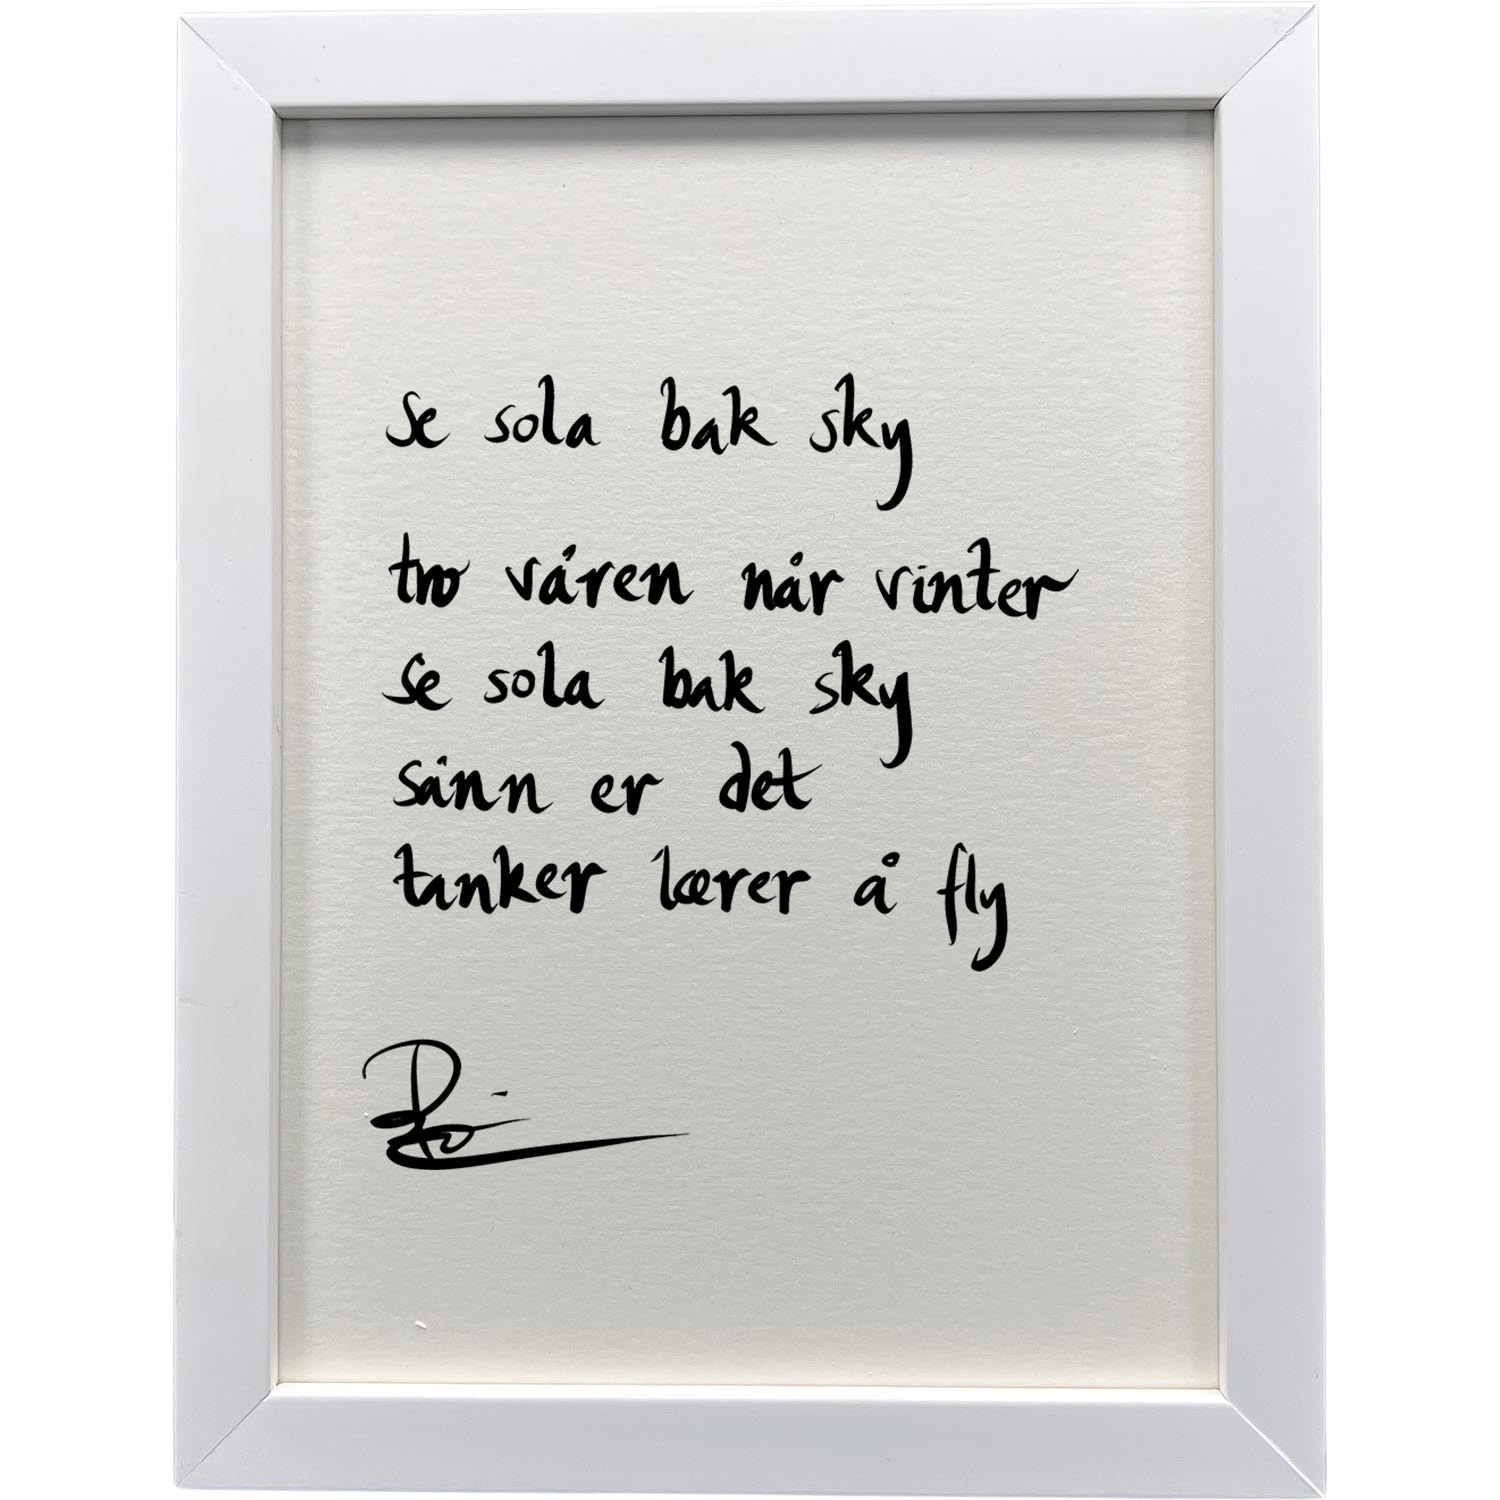 se sola bak sky
tro våren når vinter
se sola bak sky
sånn er det
tanker lærer å fly